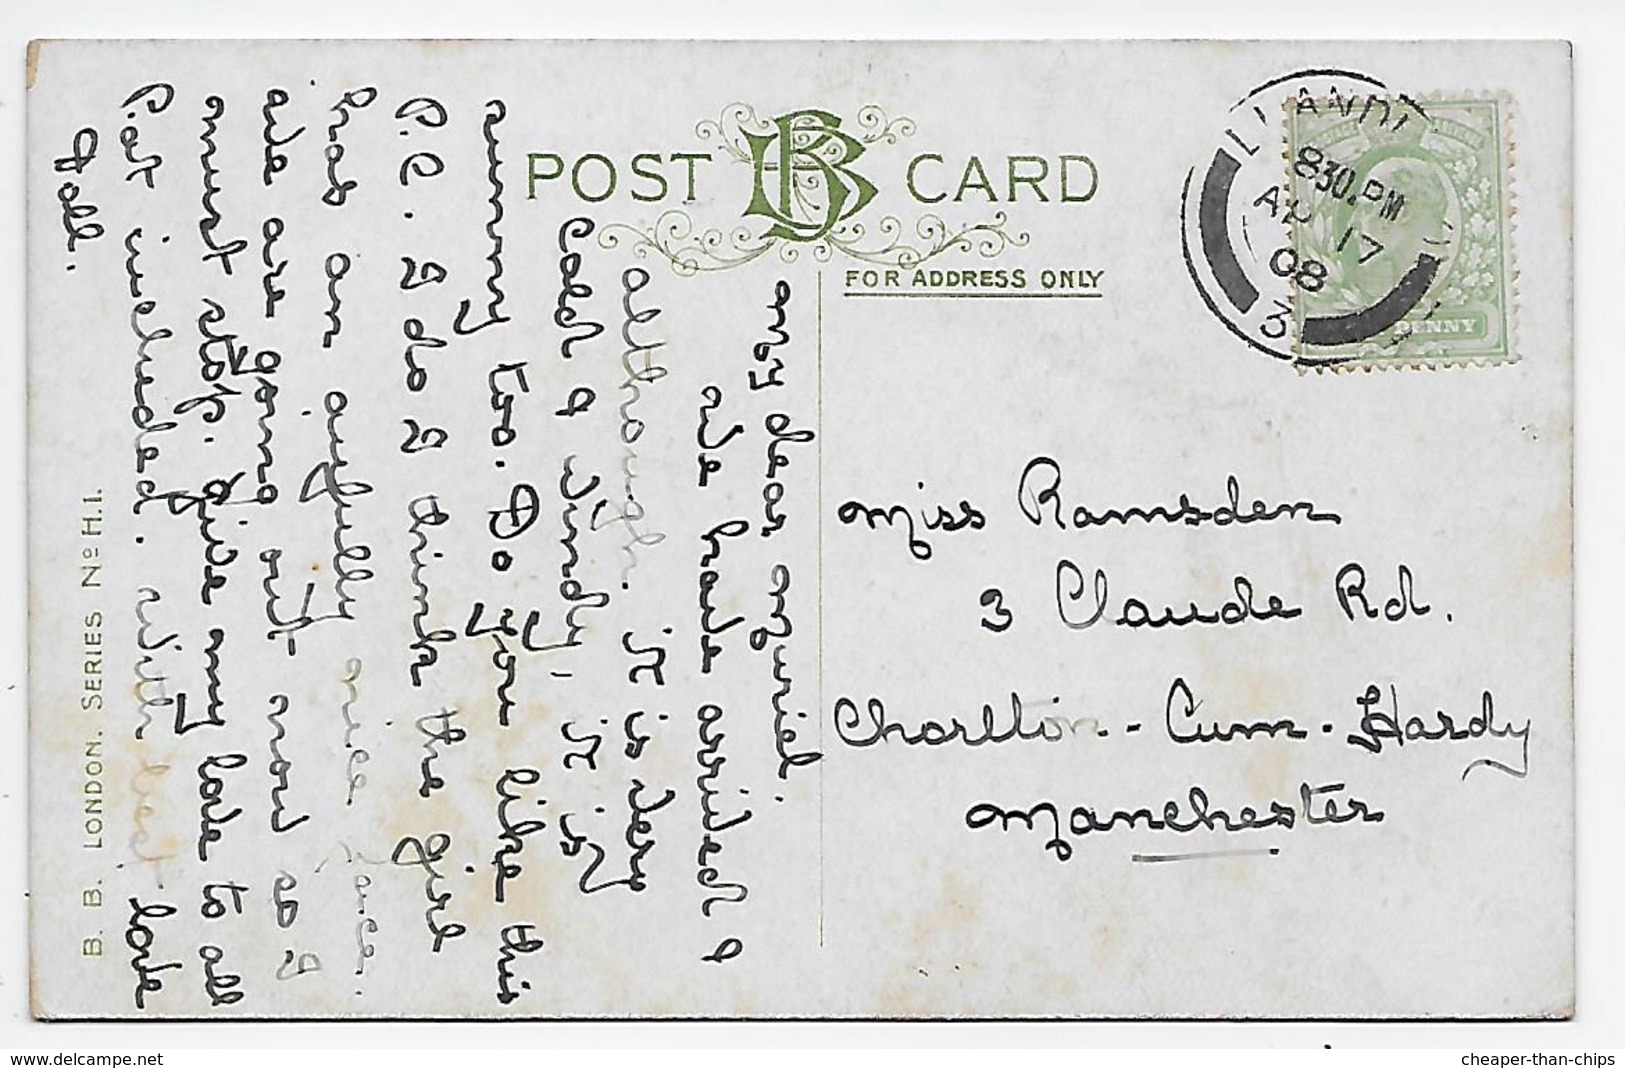 POST CARD
FOR ADDRESS ONLY
8.30.PM
AP 17
08
3
PENNY
My dear Muriel.
We have arrived &
although. it is very
cold & windy, it is
sunny too. Do you like this
P.C. I do I think the girl
has an awfully nice face.
We are going out now so I
must stop. Give my love to all
Pat included. With best love
B. B. LONDON. SERIES No H.1.
Miss Ramsden
3 Claude Rd.
Chorllton - Cum - Hardy
Manchester
www.delcampe.net
cheaper-than-chips